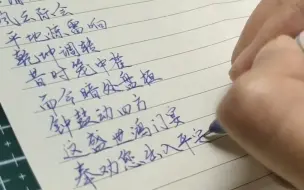 风云际会
平地惊雷向
乾坤调转
昔时笼中雀
而今暗处盘桓
钟鼓动四方
这盛世鸿门宴
奉劝您出入平安